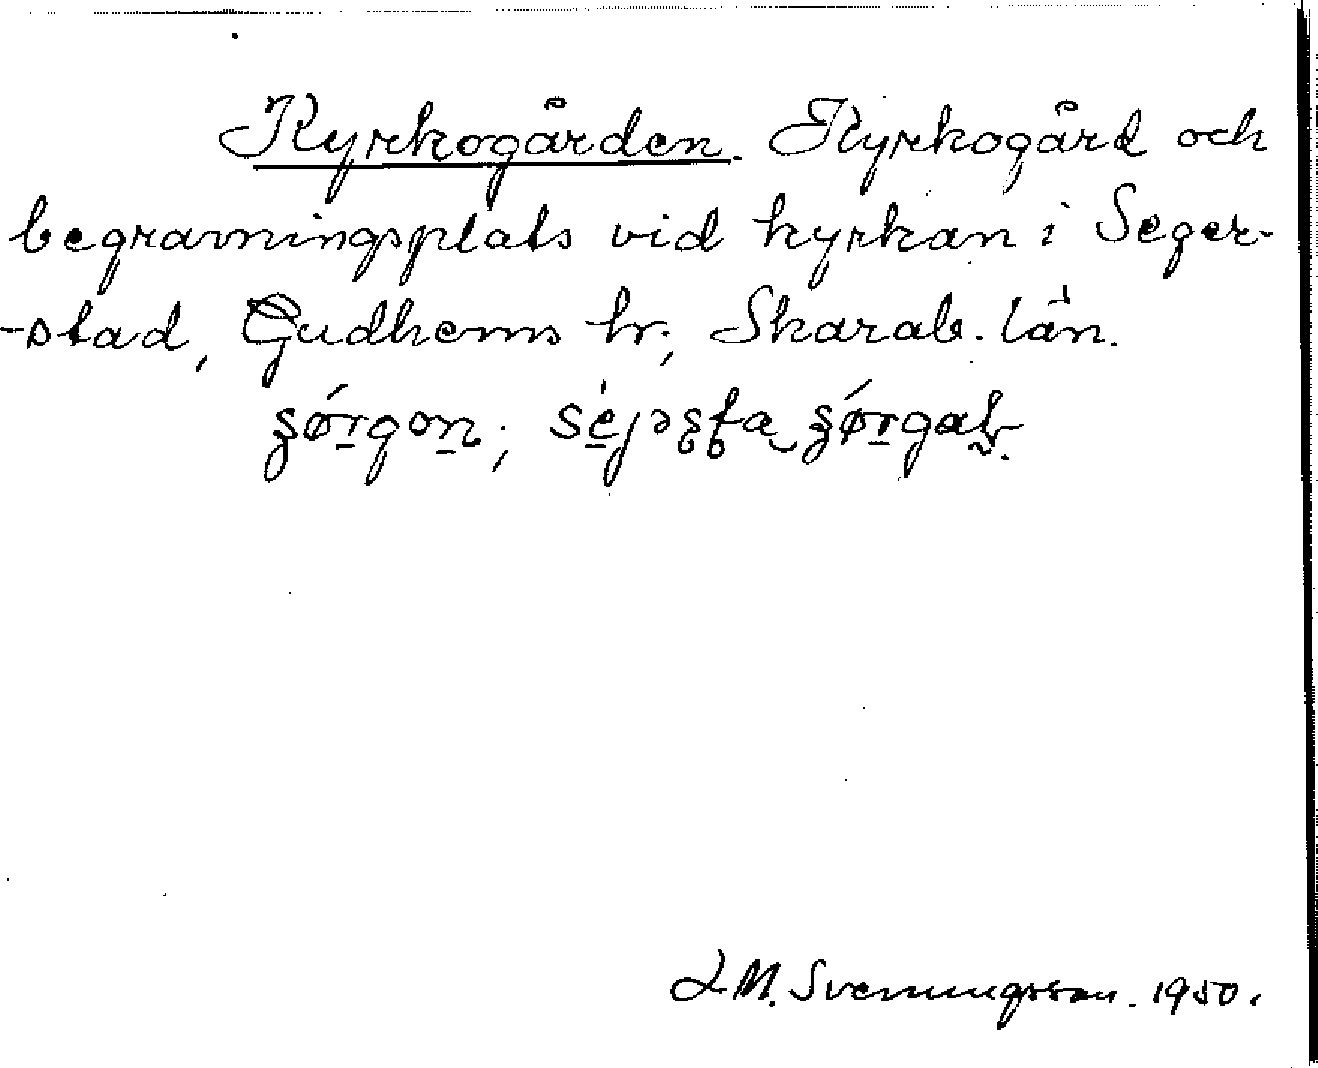 Kyrkogården. Kyrkogård och
begravningsplats vid kyrkan i Seger-
-stad, Gudhems hr., Skarab. län.
S. M. Svenungsson. 1950.